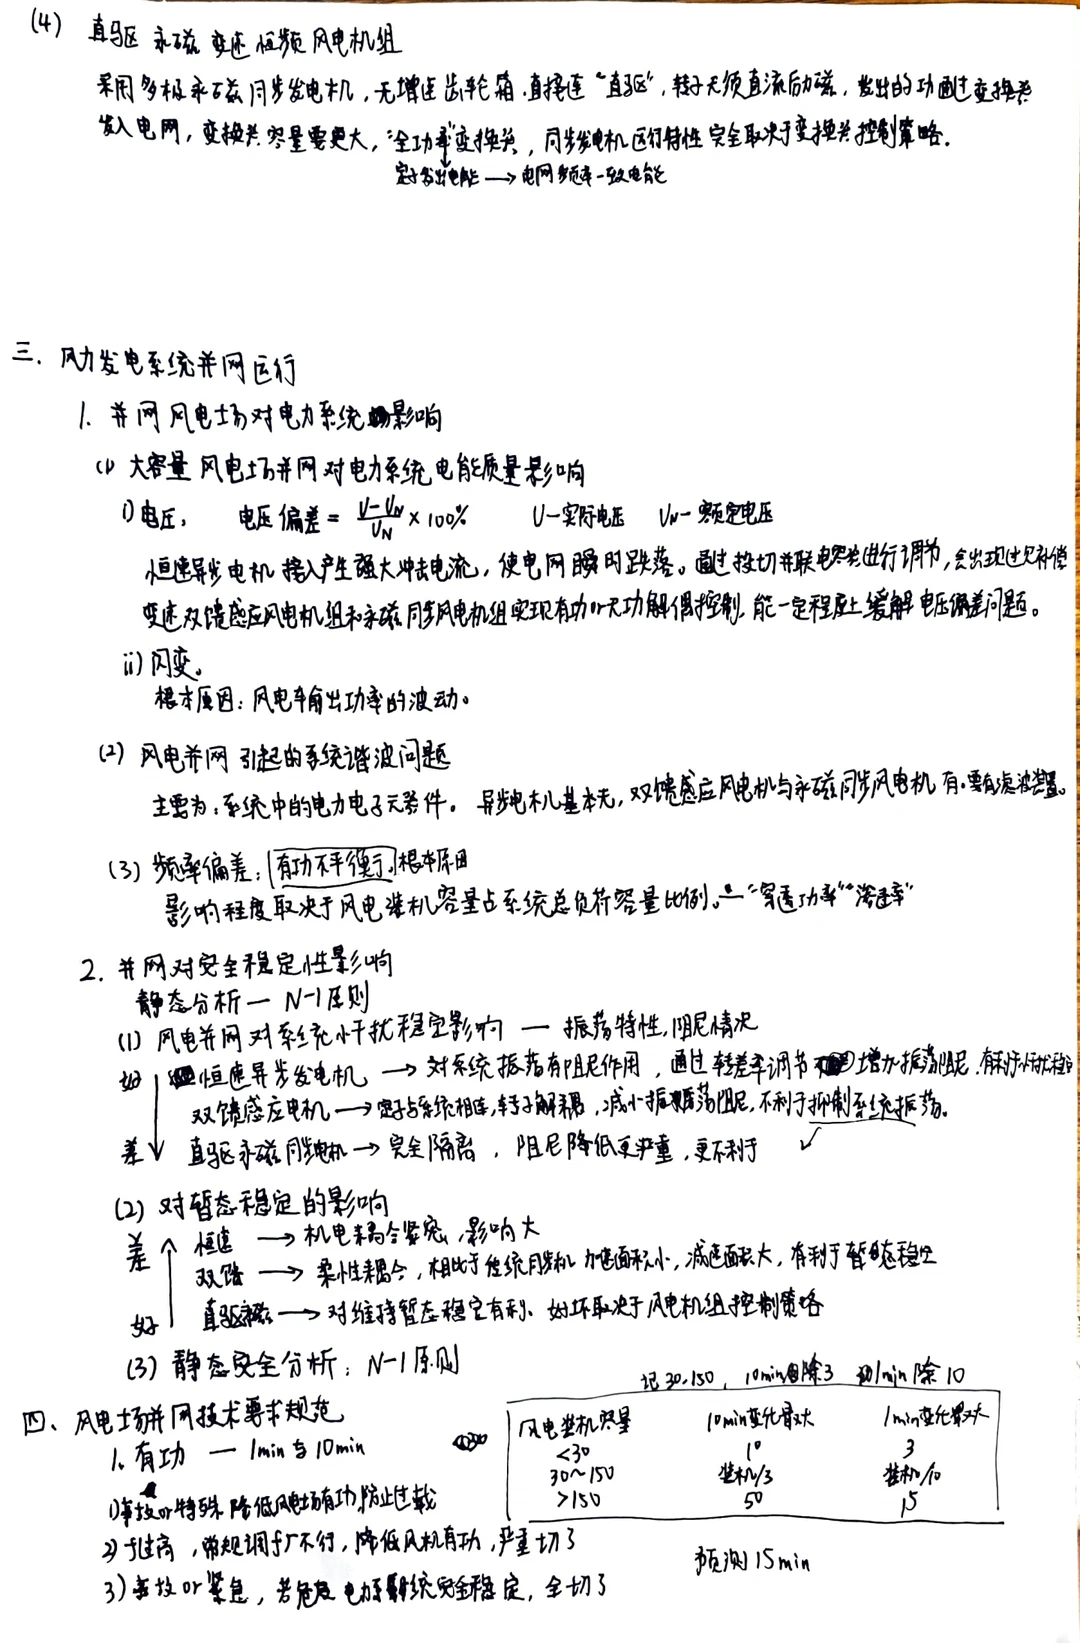 (4) 直驱永磁变速恒频风电机组
采用多极永磁同步发电机，无增速齿轮箱.直接连"直驱"，转子无须直流励磁，发出的功通过变换器
发入电网，变换器容量要更大，"全功率"变换器，同步发电机运行特性完全取决于变换器控制策略.
定子发出电能→电网频率一致电能
三.风力发电系统并网运行
1.并网风电场对电力系统影响
(1)大容量风电场并网对电力系统电能质量影响
i)电压: 电压偏差=(U-UN)/UN×100% U—实际电压 UN—额定电压
恒速异步电机接入产生强大冲击电流，使电网瞬时跌落。通过投切并联电容器进行调节，会出现过欠补偿
变速双馈感应风电机组和永磁同步风电机组实现有功or无功解偶控制，能一定程度上缓解电压偏差问题。
ii)闪变。
根本原因：风电输出功率的波动。
(2)风电并网引起的系统谐波问题
主要为：系统中的电力电子元器件。异步电机基本无，双馈感应风电机与永磁同步风电机有.要有滤波装置。
(3)频率偏差：有功不平衡.根本原因
影响程度取决于风电装机容量占系统总负荷容量比例。—"穿透功率""渗透率"
2.并网对安全稳定性影响
静态分析—N-1原则
(1)风电并网对系统小干扰稳定影响—振荡特性,阻尼情况
好 恒速异步发电机→对系统振荡有阻尼作用，通过转差率调节增加振荡阻尼.有利于小干扰稳定
双馈感应电机→定子与系统相连,转子解耦,减小振荡阻尼,不利于抑制系统振荡。
差 直驱永磁同步电机→完全隔离，阻尼降低更严重，更不利于
(2)对暂态稳定的影响
差 恒速→机电耦合紧密,影响大
双馈→柔性耦合，相比于传统同步机加速面积小，减速面积大，有利于暂态稳定
好 直驱永磁→对维持暂态稳定有利、好坏取决于风电机组控制策略
(3)静态安全分析：N-1原则
四、风电场并网技术要求规范
记30.150，10min除3 1min除10
1、有功—1min与10min
风电装机容量 10min变化最大 1min变化最大
<30 10 3
30~150 装机/3 装机/10
>150 50 15
1)事故or特殊降低风电场有功,防止过载
2)f过高，常规调f厂不行，降低风机有功，严重切了
预测15min
3)事故or紧急，若危及电力系统安全稳定，全切了